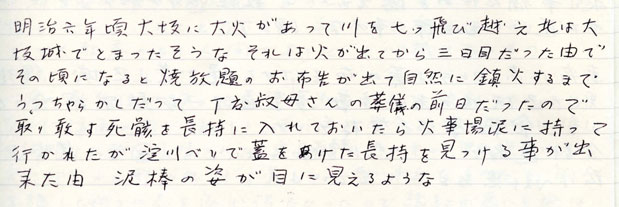 明治六年頃大坂に大火があって川を七つ飛び越え北は大
坂城でとまったそうな それは火が出てから三日目だった由で
その頃になると焼放題のお布告が出て自然に鎮火するまで
うっちゃらかしだって 丁度叔母さんの葬儀の前日だったので
取り敢す死骸を長持に入れておいたら火事場泥に持って
行かれたが淀川べりで蓋をあけた長持を見つける事が出
来た由 泥棒の姿が目に見えるような